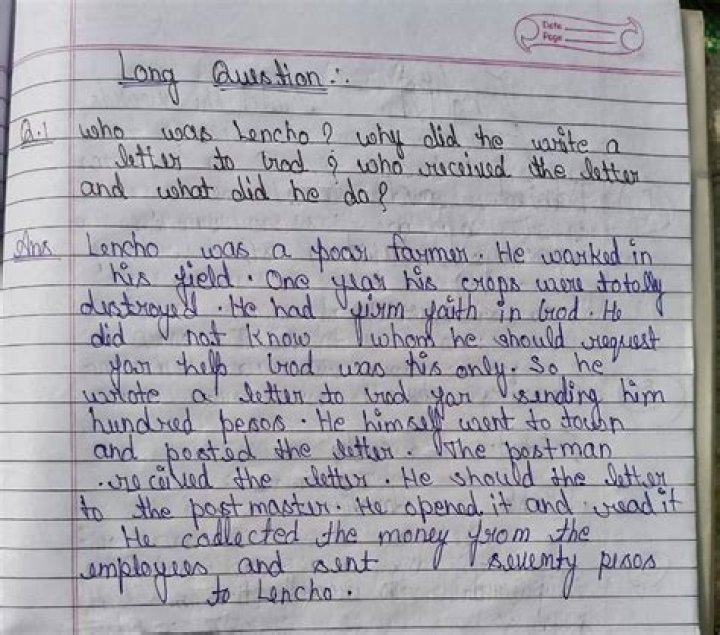 Date
Page
Long Question :.
Q.1 who was Lencho? why did he write a
letter to God ? who received the letter
and what did he do?
Ans Lencho was a poor farmer. He worked in
his field. One year his crops were totally
destroyed. He had firm faith in God. He
did not know whom he should request
for help God was his only. So he
wrote a letter to God for sending him
hundred pesos. He himself went to town
and posted the letter. The postman
received the letter. He should the letter
to the postmaster. He opened it and read it
He collected the money from the
employees and sent seventy pesos
to Lencho.